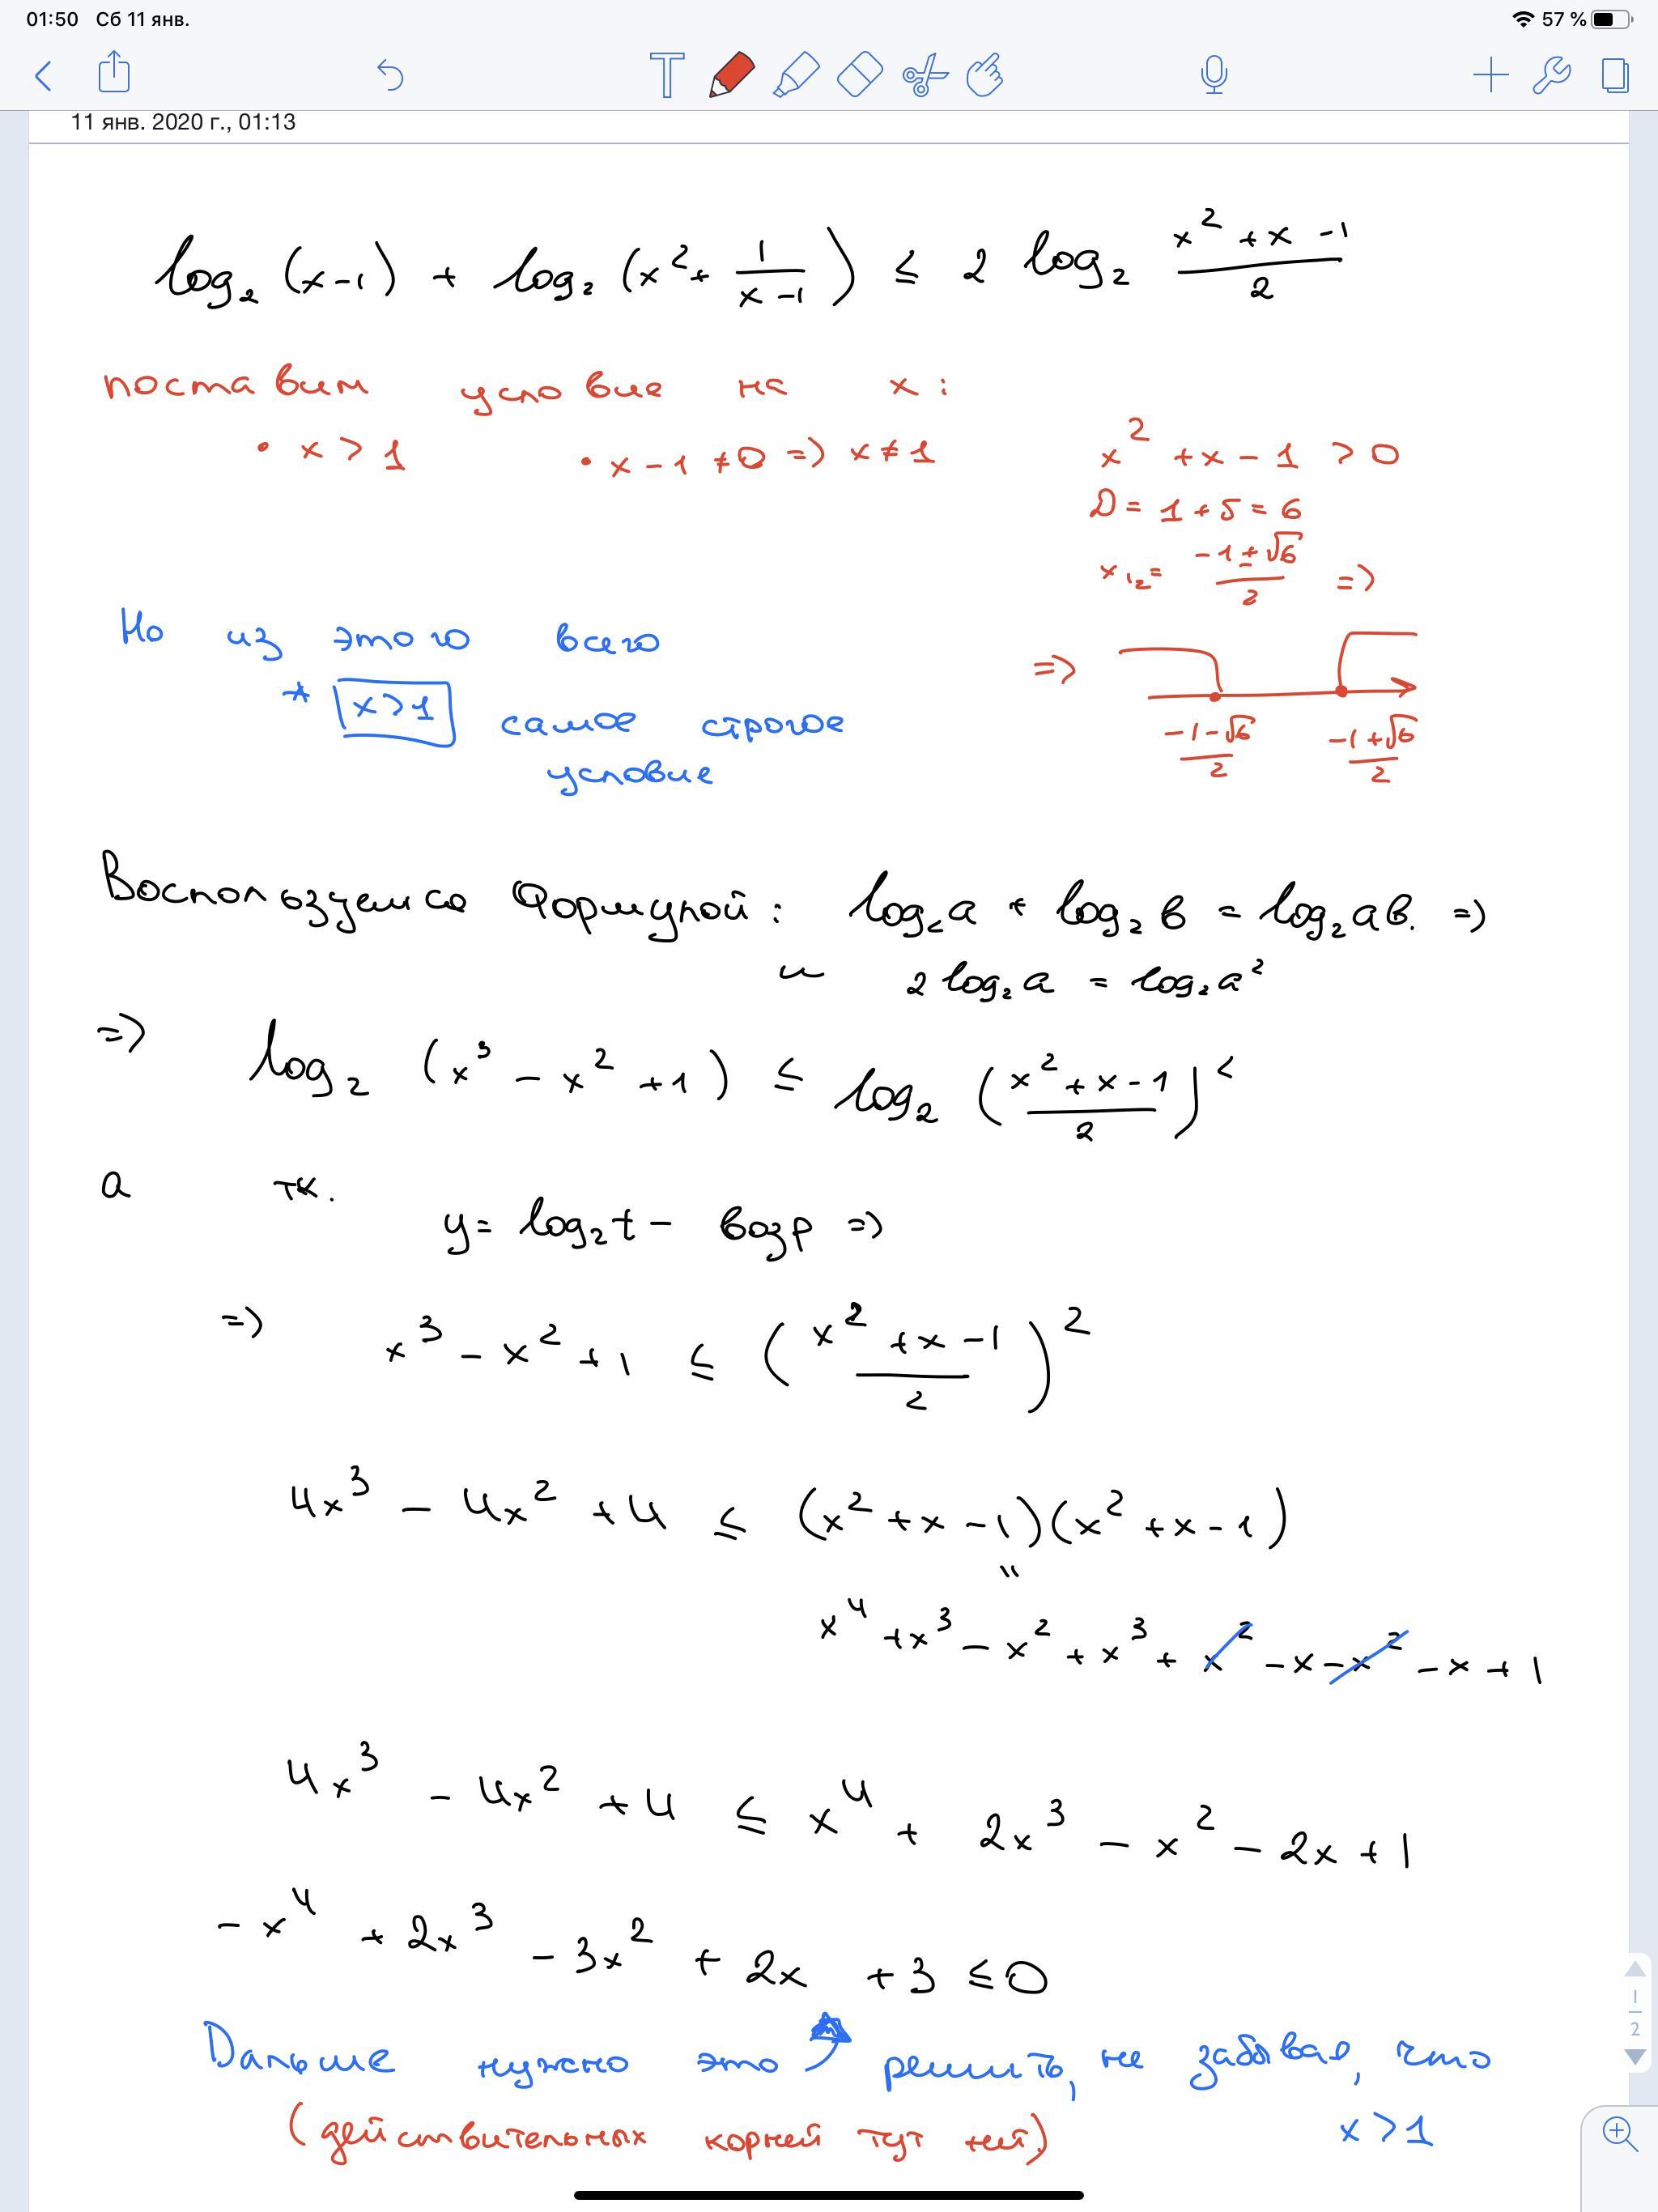 01:50 Сб 11 янв. 57 %
11 янв. 2020 г., 01:13
log₂ (x-1) + log₂ (x² + 1/(x-1)) ≤ 2 log₂ (x²+x-1)/2
поставим условие на x:
• x > 1 • x - 1 ≠ 0 => x ≠ 1
x² + x - 1 > 0
D = 1 + 5 = 6
x₁₂ = (-1 ± √6)/2 =>
=> (-1-√6)/2 (-1+√6)/2
Но из этого всего
* x > 1 самое строгое
условие
Воспользуемся формулой: log₂a + log₂b = log₂ab. =>
и 2 log₂a = log₂a²
=> log₂ (x³ - x² + 1) ≤ log₂ ((x²+x-1)/2)²
а тк.
y = log₂t - возр =>
=> x³ - x² + 1 ≤ ((x²+x-1)/2)²
4x³ - 4x² + 4 ≤ (x² + x - 1)(x² + x - 1)
"
x⁴ + x³ - x² + x³ + x² - x - x² - x + 1
4x³ - 4x² + 4 ≤ x⁴ + 2x³ - x² - 2x + 1
-x⁴ + 2x³ - 3x² + 2x + 3 ≤ 0
Дальше нужно это решить, не забывая, что
x > 1
(действительных корней тут нет)
1
2